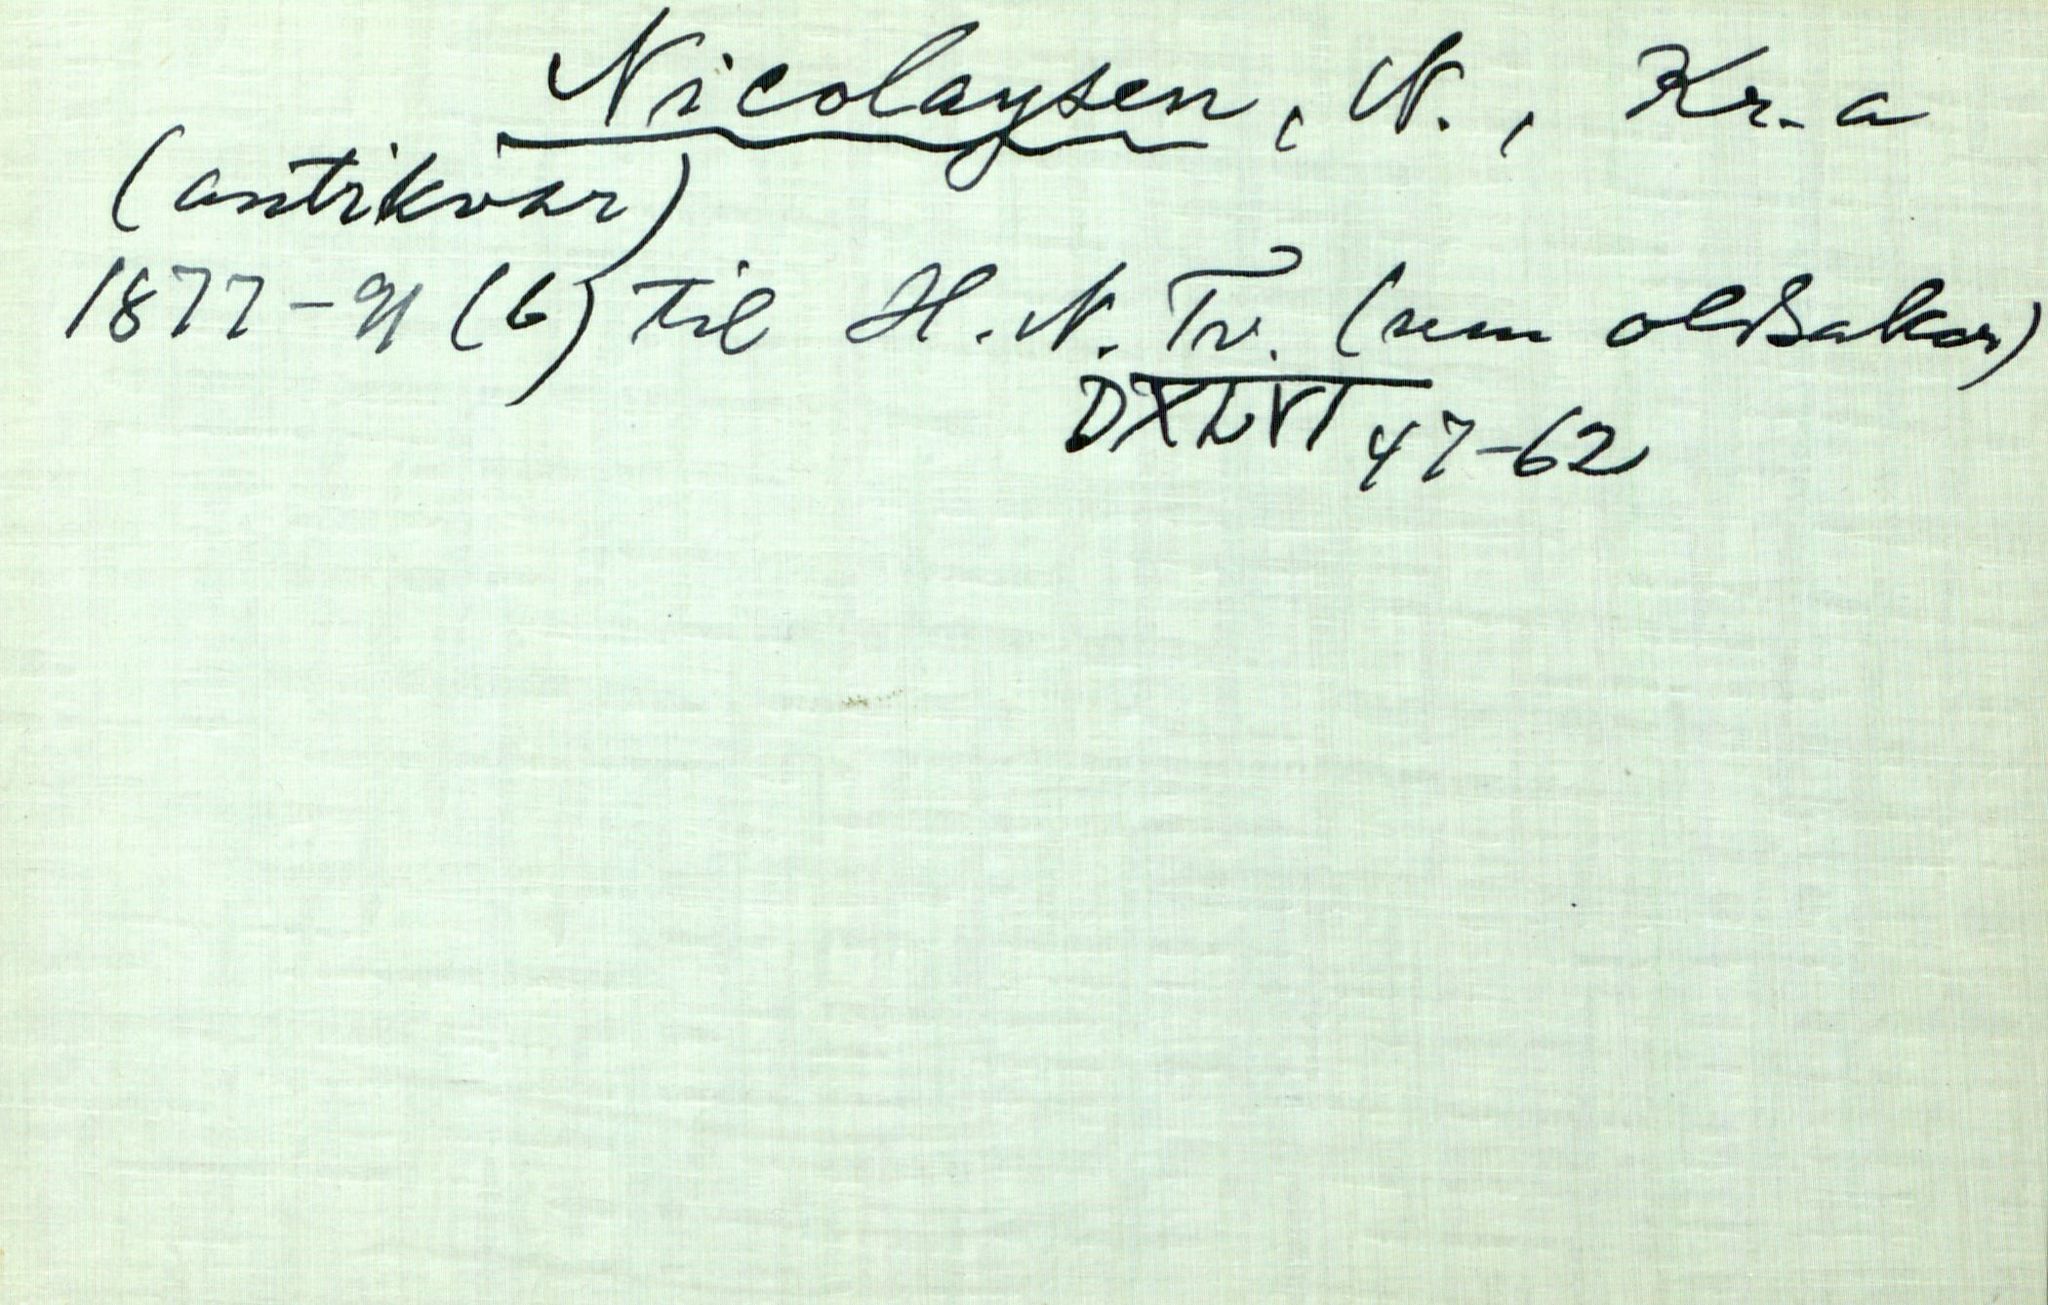 Nicolaysen, N., Kr.a
(antikvar)
1877-91 (6) til H.N. Tv. (um oldsaker)
DXLVI 47-62